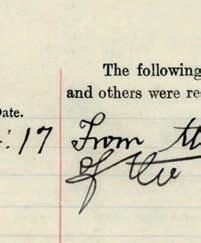 The following
and others were re
Date.
17 From th
of the